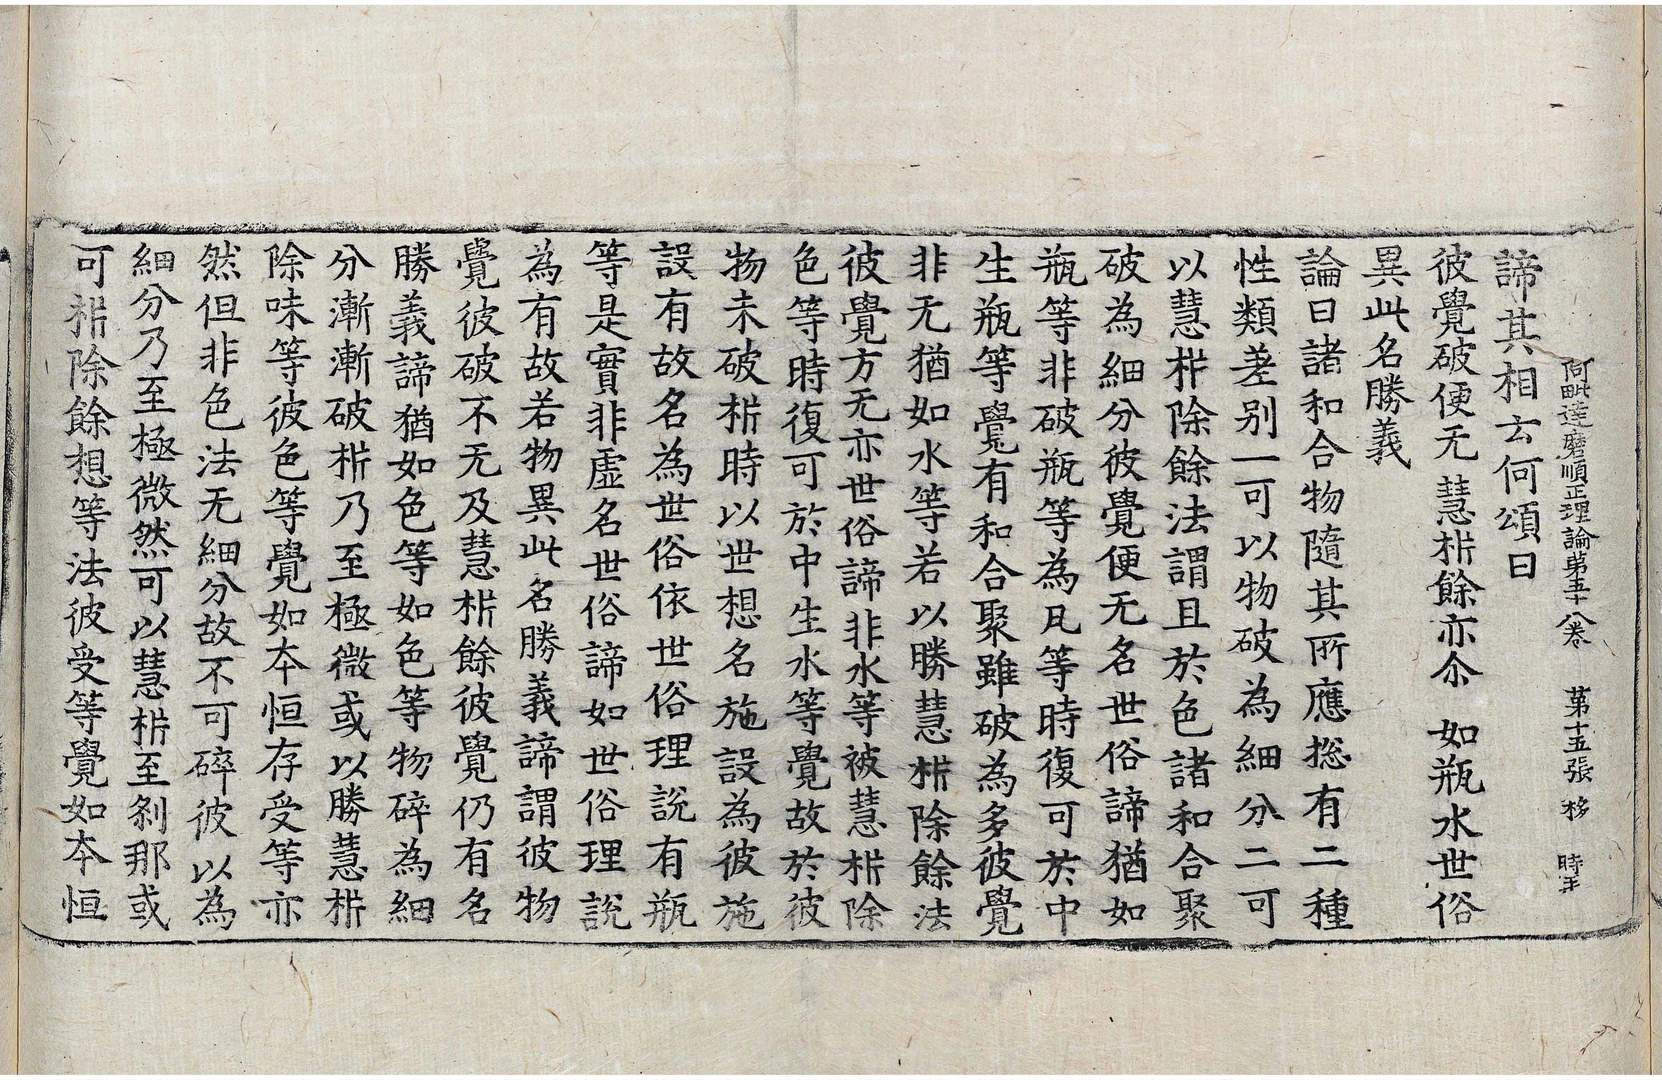 阿毗達磨順正理論第五十八卷 第十五張 移 時
諦其相云何頌曰
彼覺破便无 慧枿餘亦尒 如瓶水世俗
異此名勝義
論曰諸和合物隨其所應揔有二種
性類差別一可以物破為細分二可
以慧枿除餘法謂且於色諸和合聚
破為細分彼覺便无名世俗諦猶如
瓶等非破瓶等為凡等時復可於中
生瓶等覺有和合聚雖破為多彼覺
非无猶如水等若以勝慧枿除餘法
彼覺方无亦世俗諦非水等被慧枿除
色等時復可於中生水等覺故於彼
物未破枿時以世想名施設為彼施
設有故名為世俗依世俗理說有瓶
等是實非虛名世俗諦如世俗理說
為有故若物異此名勝義諦謂彼物
覺彼破不无及慧枿餘彼覺仍有名
勝義諦猶如色等如色等物碎為細
分漸漸破枿乃至極微或以勝慧枿
除味等彼色等覺如夲恒存受等亦
然但非色法无細分故不可碎彼以為
細分乃至極微然可以慧枿至剎那或
可枿除餘想等法彼受等覺如夲恒